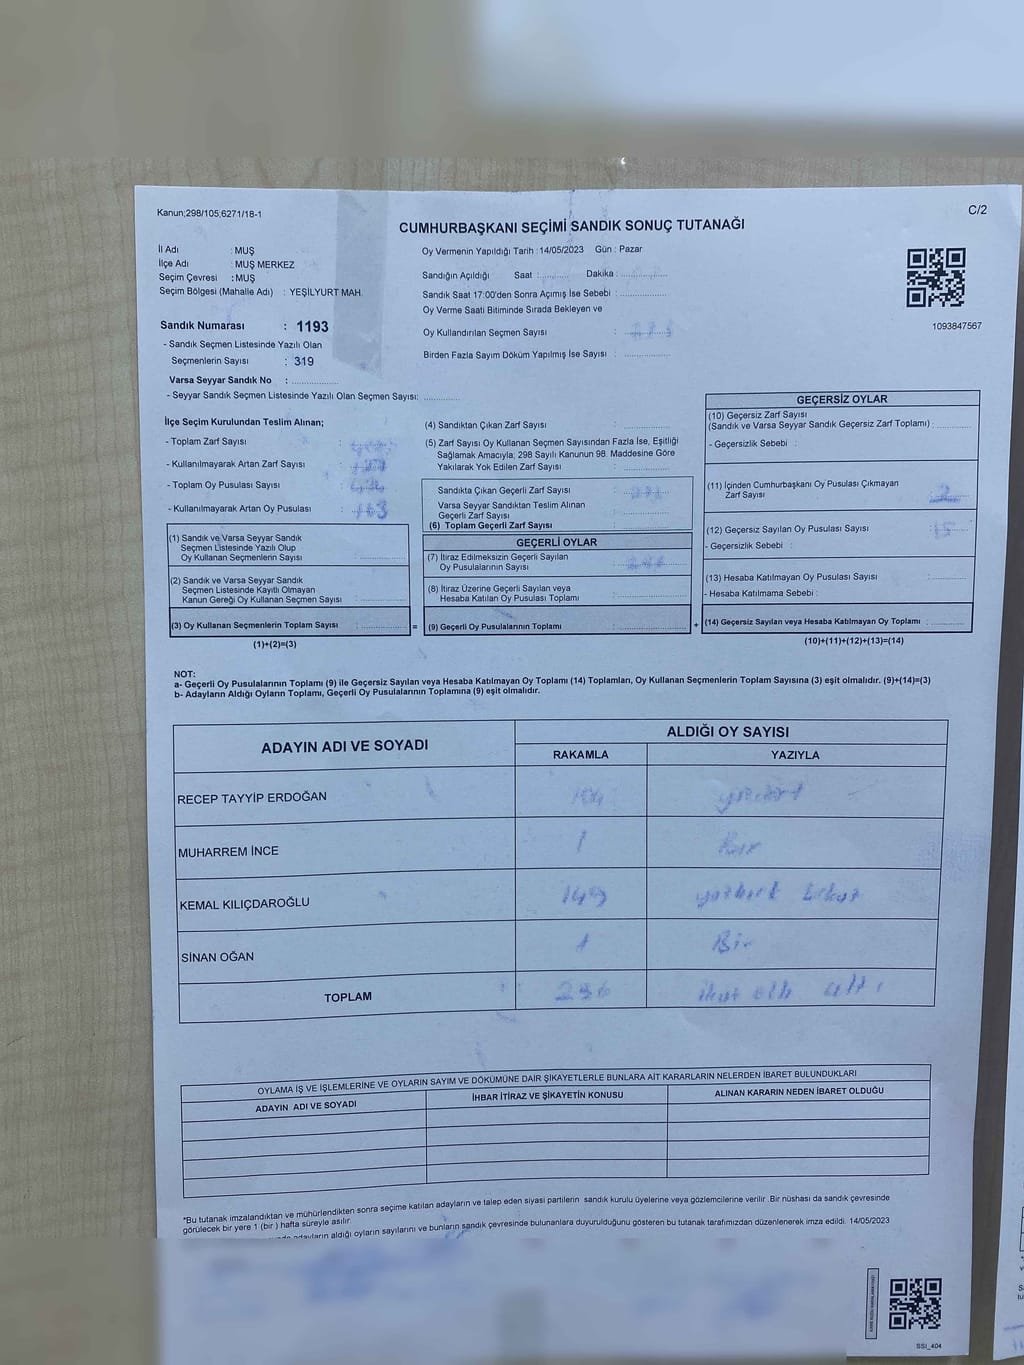 Kanun;298/105;6271/18-1
C/2
CUMHURBAŞKANI SEÇİMİ SANDIK SONUÇ TUTANAĞI
İl Adı : MUŞ
İlçe Adı : MUŞ MERKEZ
Seçim Çevresi : MUŞ
Seçim Bölgesi (Mahalle Adı) : YEŞİLYURT MAH.
Sandık Numarası : 1193
- Sandık Seçmen Listesinde Yazılı Olan
Seçmenlerin Sayısı : 319
Varsa Seyyar Sandık No :
- Seyyar Sandık Seçmen Listesinde Yazılı Olan Seçmen Sayısı:
Oy Vermenin Yapıldığı Tarih : 14/05/2023 Gün : Pazar
Sandığın Açıldığı Saat : Dakika :
Sandık Saat 17:00'den Sonra Açımış İse Sebebi :
Oy Verme Saati Bitiminde Sırada Bekleyen ve
Oy Kullandırılan Seçmen Sayısı :
Birden Fazla Sayım Döküm Yapılmış İse Sayısı :
1093847567
İlçe Seçim Kurulundan Teslim Alınan;
- Toplam Zarf Sayısı :
- Kullanılmayarak Artan Zarf Sayısı :
- Toplam Oy Pusulası Sayısı :
- Kullanılmayarak Artan Oy Pusulası : 163
(1) Sandık ve Varsa Seyyar Sandık
Seçmen Listesinde Yazılı Olup
Oy Kullanan Seçmenlerin Sayısı :
(2) Sandık ve Varsa Seyyar Sandık
Seçmen Listesinde Kayıtlı Olmayan
Kanun Gereği Oy Kullanan Seçmen Sayısı :
(3) Oy Kullanan Seçmenlerin Toplam Sayısı :
(1)+(2)=(3)
=
(4) Sandıktan Çıkan Zarf Sayısı :
(5) Zarf Sayısı Oy Kullanan Seçmen Sayısından Fazla İse, Eşitliği
Sağlamak Amacıyla; 298 Sayılı Kanunun 98. Maddesine Göre
Yakılarak Yok Edilen Zarf Sayısı :
Sandıkta Çıkan Geçerli Zarf Sayısı :
Varsa Seyyar Sandıktan Teslim Alınan
Geçerli Zarf Sayısı :
(6) Toplam Geçerli Zarf Sayısı :
GEÇERLİ OYLAR
(7) İtiraz Edilmeksizin Geçerli Sayılan
Oy Pusulalarının Sayısı :
(8) İtiraz Üzerine Geçerli Sayılan veya
Hesaba Katılan Oy Pusulası Toplamı :
(9) Geçerli Oy Pusulalarının Toplamı :
+
GEÇERSİZ OYLAR
(10) Geçersiz Zarf Sayısı
(Sandık ve Varsa Seyyar Sandık Geçersiz Zarf Toplamı) :
- Geçersizlik Sebebi :
(11) İçinden Cumhurbaşkanı Oy Pusulası Çıkmayan
Zarf Sayısı : 2
(12) Geçersiz Sayılan Oy Pusulası Sayısı : 15
- Geçersizlik Sebebi :
(13) Hesaba Katılmayan Oy Pusulası Sayısı :
- Hesaba Katılmama Sebebi :
(14) Geçersiz Sayılan veya Hesaba Katılmayan Oy Toplamı :
(10)+(11)+(12)+(13)=(14)
NOT:
a- Geçerli Oy Pusulalarının Toplamı (9) ile Geçersiz Sayılan veya Hesaba Katılmayan Oy Toplamı (14) Toplamları, Oy Kullanan Seçmenlerin Toplam Sayısına (3) eşit olmalıdır. (9)+(14)=(3)
b- Adayların Aldığı Oyların Toplamı, Geçerli Oy Pusulalarının Toplamına (9) eşit olmalıdır.
ADAYIN ADI VE SOYADI ALDIĞI OY SAYISI
RAKAMLA YAZIYLA
RECEP TAYYİP ERDOĞAN
MUHARREM İNCE 1 Bir
KEMAL KILIÇDAROĞLU 149
SİNAN OĞAN 1 Bir
TOPLAM 256
OYLAMA İŞ VE İŞLEMLERİNE VE OYLARIN SAYIM VE DÖKÜMÜNE DAİR ŞİKAYETLERLE BUNLARA AİT KARARLARIN NELERDEN İBARET BULUNDUKLARI
ADAYIN ADI VE SOYADI İHBAR İTİRAZ VE ŞİKAYETİN KONUSU ALINAN KARARIN NEDEN İBARET OLDUĞU
*Bu tutanak imzalandıktan ve mühürlendikten sonra seçime katılan adayların ve talep eden siyasi partilerin sandık kurulu üyelerine veya gözlemcilerine verilir .Bir nüshası da sandık çevresinde
görülecek bir yere 1 (bir ) hafta süreyle asılır.
adayların aldığı oyların sayılarını ve bunların sandık çevresinde bulunanlara duyurulduğunu gösteren bu tutanak tarafımızdan düzenlenerek imza edildi. 14/05/2023
SSI_404